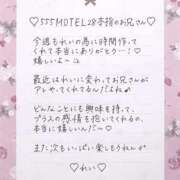 ♡555MOTEL28本指のお兄さん♡
今週もれいの為に時間作って
くれて本当にありがとう…♡
嬉しいよ〜ユ
最近はれいに変わってお兄さんが
アレやってくるんだもんなぁ
どんなことにも興味を持って、
プラスの感情を抱いてくれるの、
本当に嬉しいんだ〜♡
また次もいっぱい楽しもうねっ♡
♡れい♡